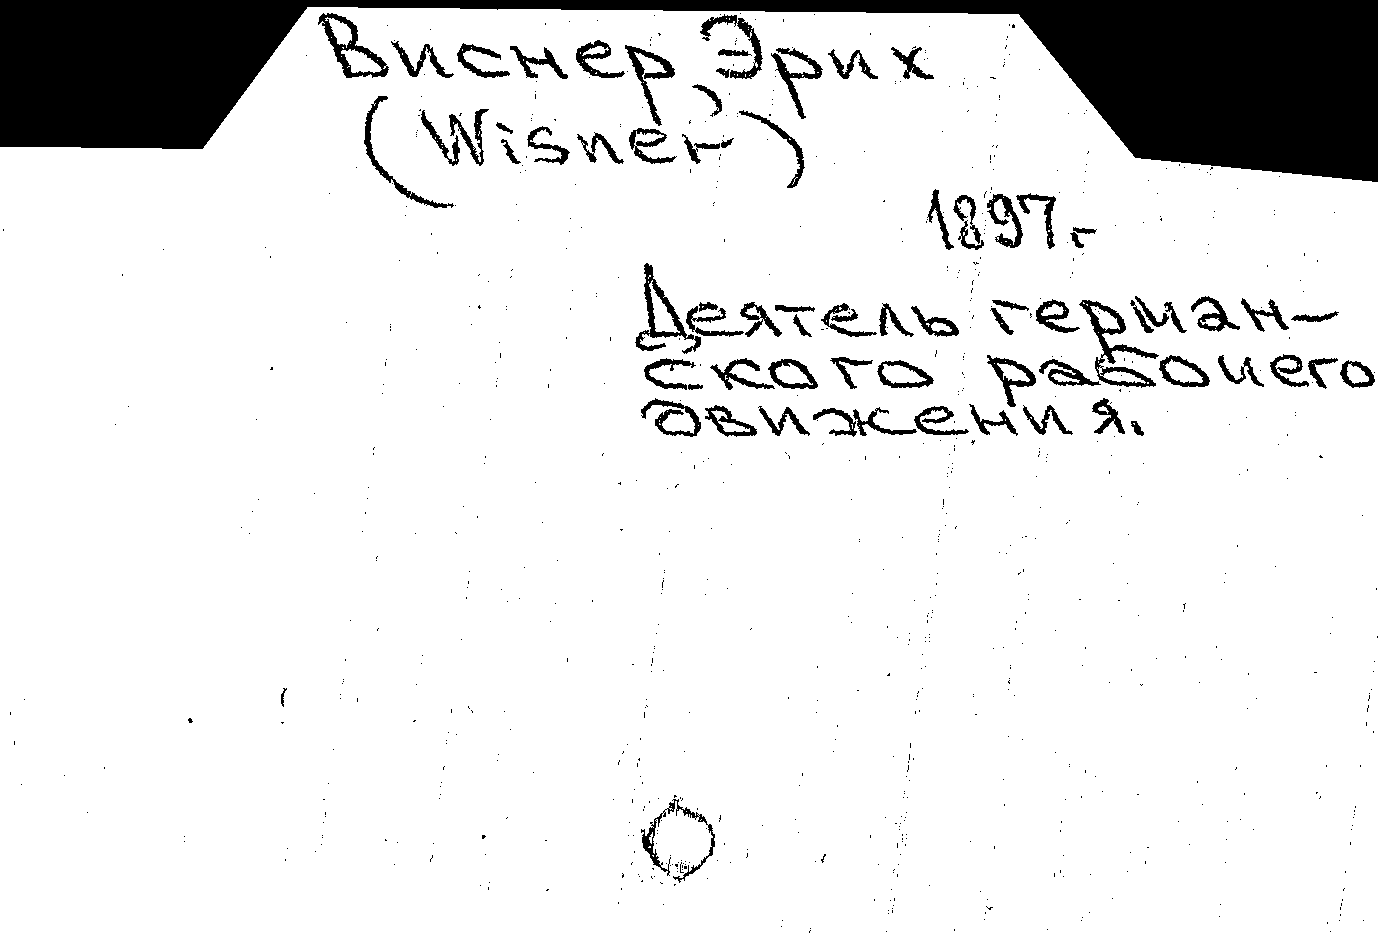 Виснер, Эрих
(Wisner)
1897 г
Деятель герман-
ского рабочего
движения.